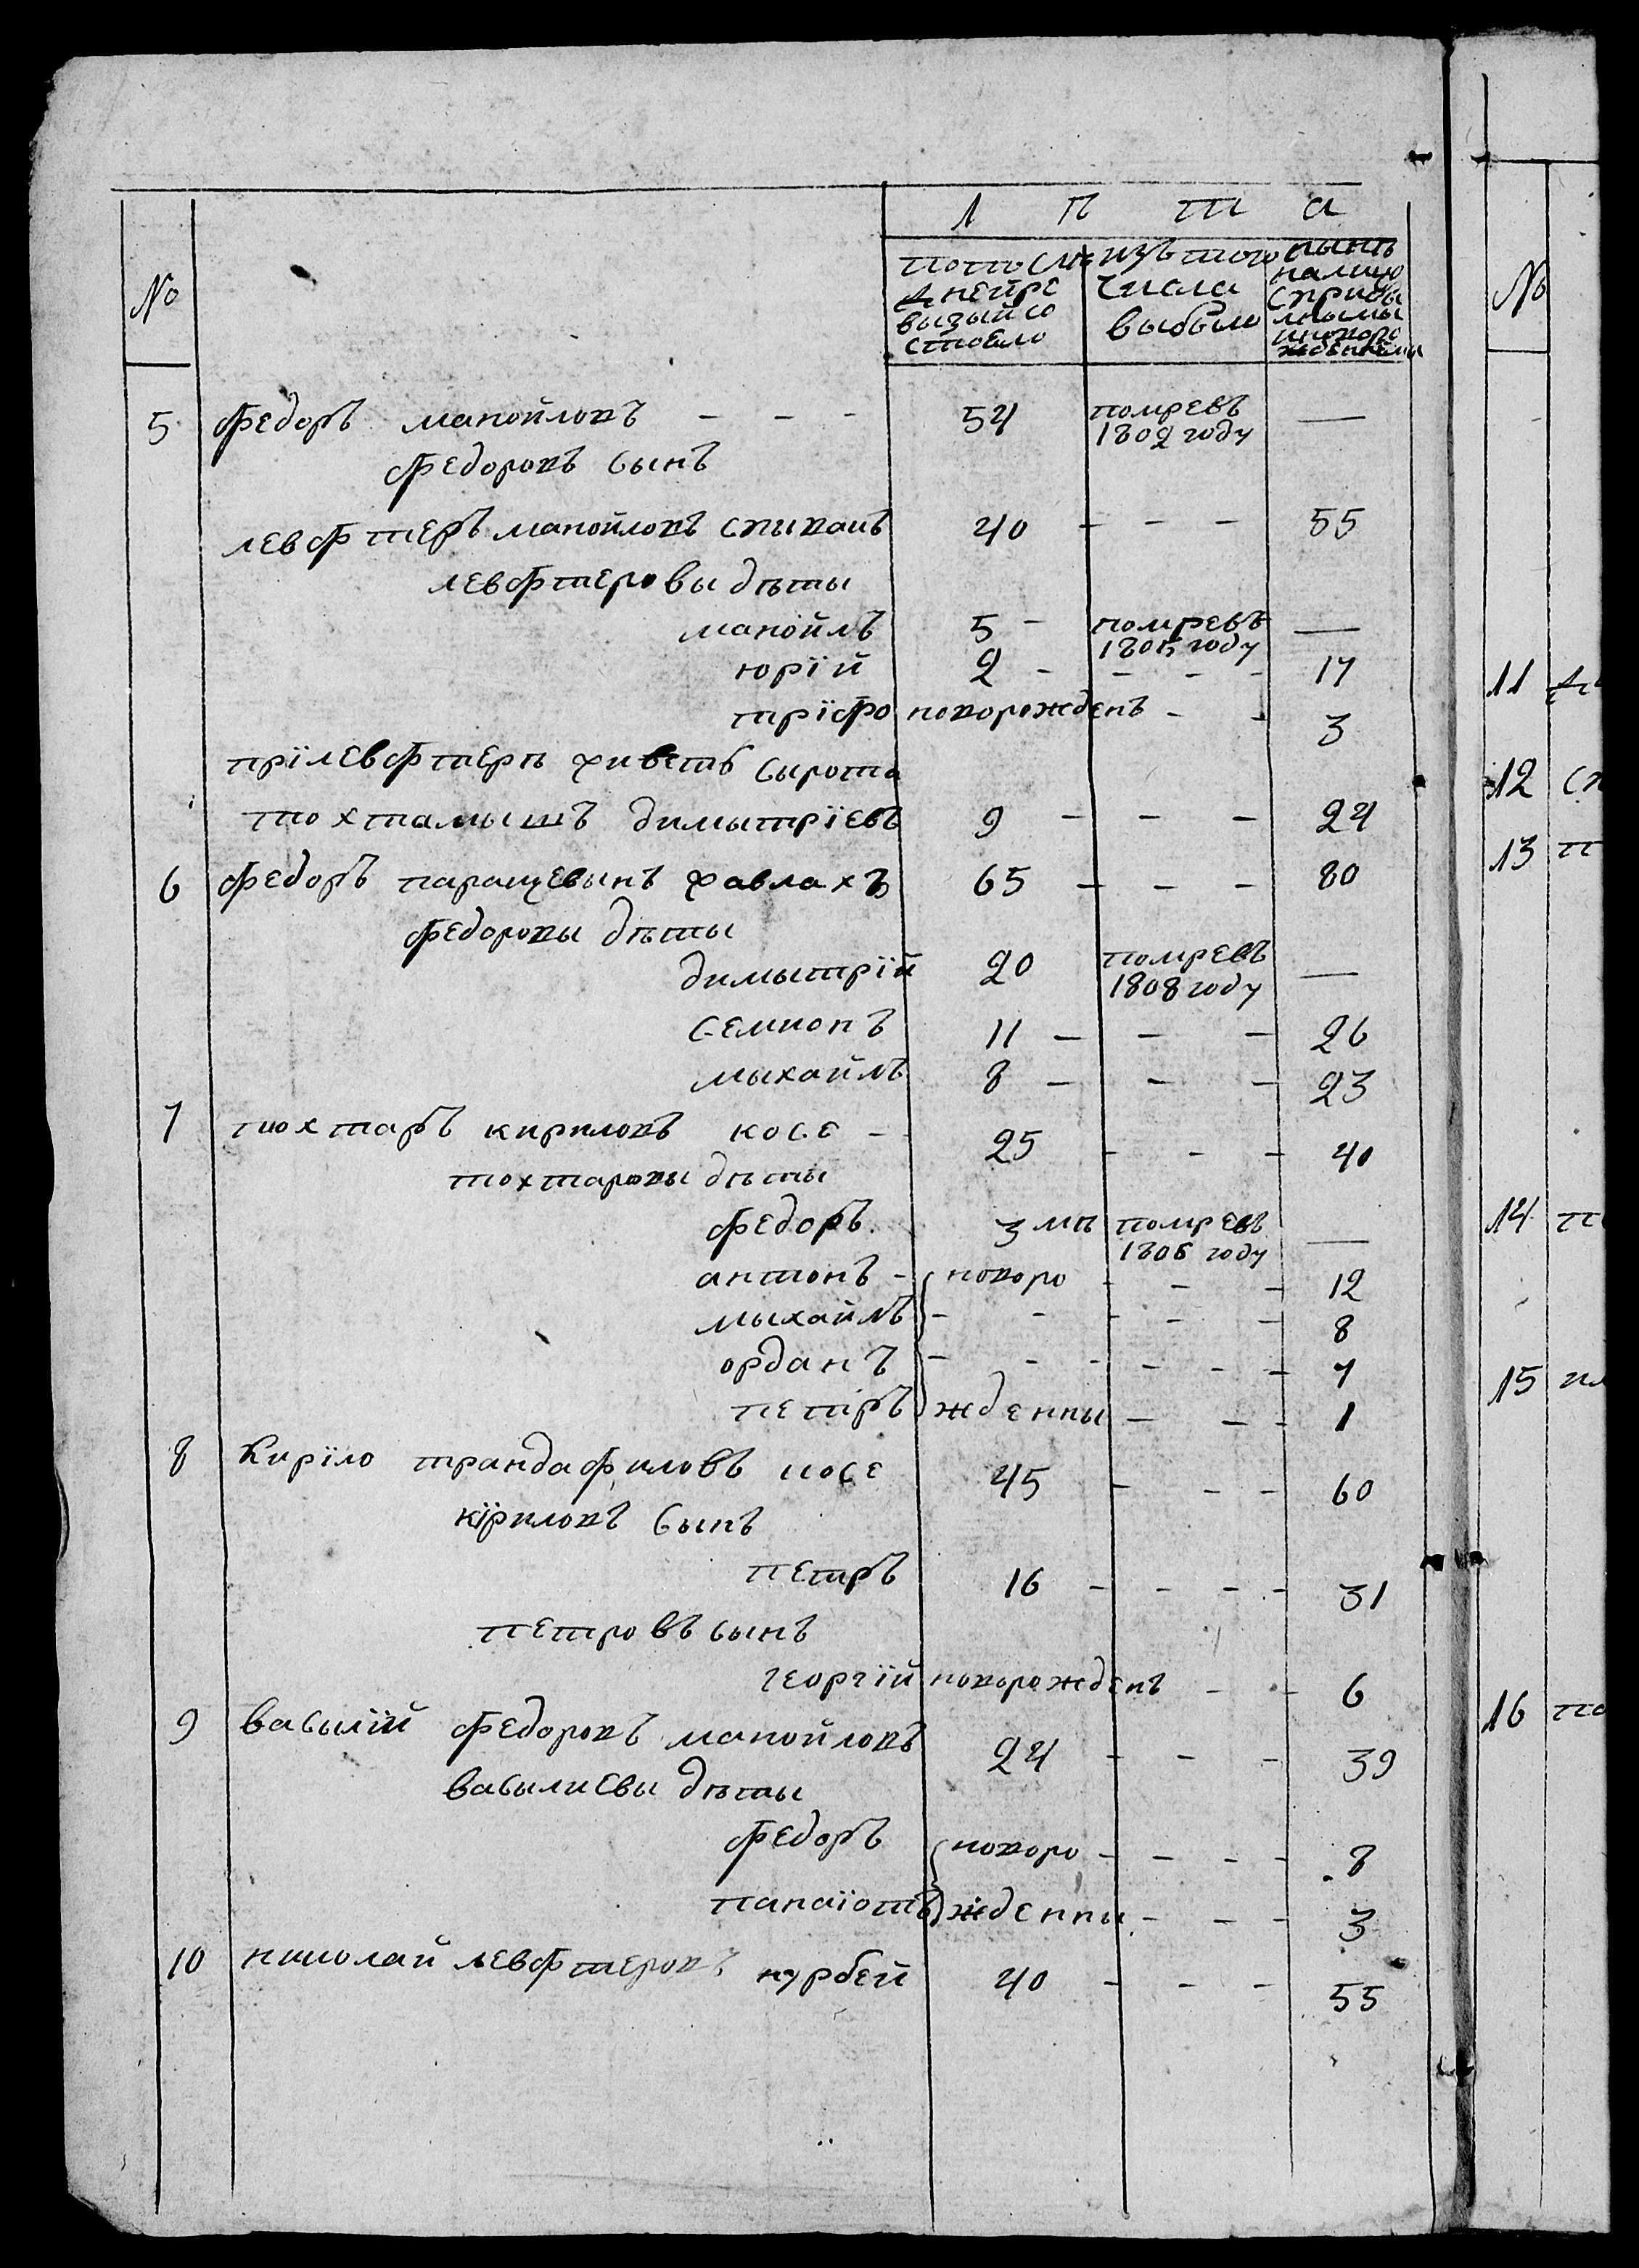 Л Ѣ Т А
№
попослѣ
днейре
вызыйсо
стояло
изътого
числа
выбыло
нынѣ
налицо
№
5 Федоръ манойловъ - - - 54 помревъ 1802 году —
Федоровъ сынъ
левфтеръ манойловъ 40 - - - 55
левфтеровы дѣты
манойлъ 5 - помревъ —
юрїй 2 - - - - 17
трїфо новорожденъ - - 3
прїлевфтерѣ живетъ сырота
тохтамышъ димытрїевъ 9 - - - 24
6 Федоръ паращевынъ хавлахъ 65 - - - 80
Федоровы дѣты
димытрїй 20 помревъ 1808 году —
Семионъ 11 - - - 26
мыхайлъ 8 - - - 23
7 тохтаръ кириловъ косе - 25 - - - 40
тохтаровы дѣты
Федоръ 3 мп помревъ 1806 году —
антонъ - новоро - - - 12
мыхайлъ - - - - - 8
орданъ - - - - - - 7
петръ жденны - - - 1
8 Кирїло трандафиловъ косе 45 - - - 60
кїриловъ сынъ
петръ 16 - - - - 31
петровъ сынъ
георгїй новорожденъ - - 6
9 васылїй Федоровъ манойловъ 24 - - - 39
васылиевы дѣты
Федоръ новоро - - - - 8
панаїотъ жденны - - - 3
10 николай левфтеровъ курбей 40 - - - 55
11
12
13
14
15
16